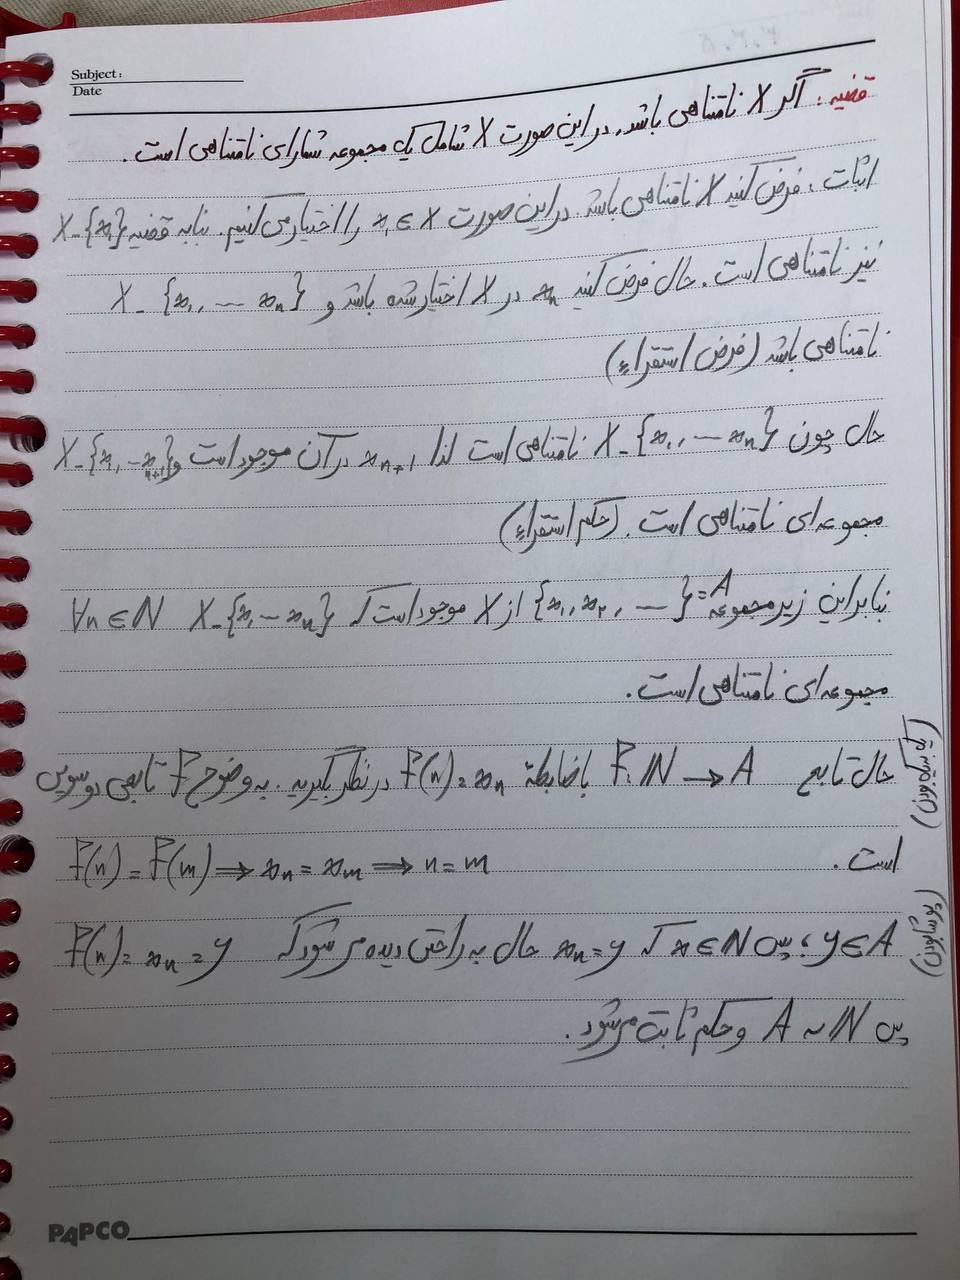 Subject:
Date
قضیه: اگر X نامتناهی باشد، در این صورت X شامل یک مجموعه شمارای نامتناهی است.
اثبات: فرض کنید X نامتناهی باشد در این صورت x₁ ∈ X را اختیار می کنیم. بنابه قضیه X-{x₁}
نیز نامتناهی است. حال فرض کنید xₙ در X اختیار شده باشد و X-{x₁, ... xₙ}
نامتناهی باشد (فرض استقراء)
حال چون X-{x₁, ... xₙ} نامتناهی است لذا xₙ₊₁ در آن موجود است و X-{x₁ ... xₙ₊₁}
مجموعه ای نامتناهی است. (حکم استقراء)
بنابراین زیرمجموعه A={x₁, x₂, ...} از X موجود است که X-{x₁ ... xₙ} ∀n∈ℕ
مجموعه ای نامتناهی است.
حال تابع f:ℕ → A با ضابطهٔ f(n)=xₙ در نظر بگیرید. به وضوح f تابعی دوسویی
(یک به یک بودن)
است. f(n)=f(m) ⇒ xₙ=xₘ ⇒ n=m
(پوشا بودن)
y∈A؛ پس x∈ℕ که xₙ=y حال به راحتی دیده می شود که f(n)=xₙ=y
پس A ~ ℕ و حکم ثابت می شود.
PAPCO